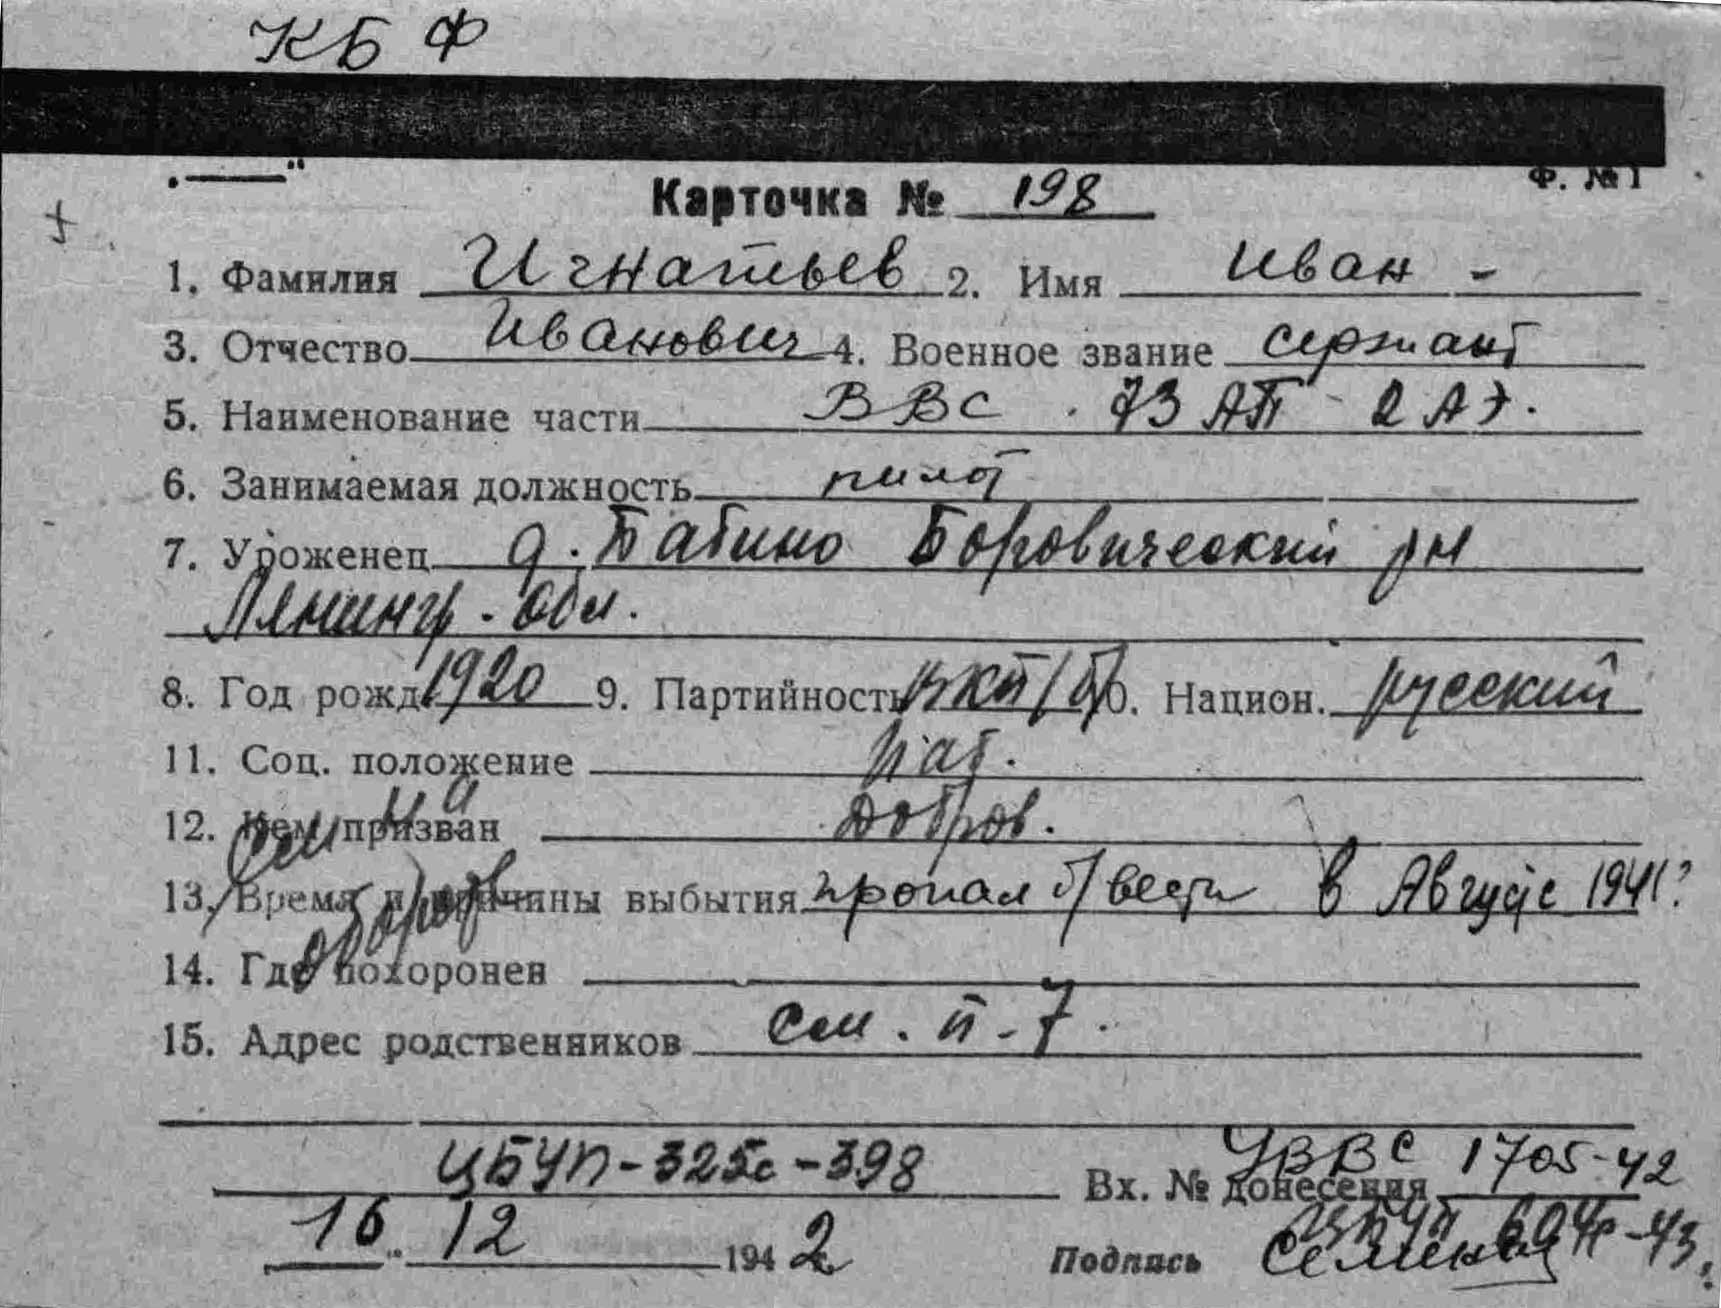 КБФ
Ф. № 1
Карточка № 198
1. Фамилия Игнатьев 2. Имя Иван -
3. Отчество Иванович 4. Военное звание сержант
5. Наименование части ВВС . 73 АП - 2 АЭ.
6. Занимаемая должность пилот
7. Уроженец д. Бабино Боровический рн
Ленингр. обл.
8. Год рожд 1920 9. Партийность ВКП/б/ 10. Национ. русский
11. Соц. положение раб.
12. Кем призван Добров.
См на
13. Время и причины выбытия пропал б/вести в Августе 1941?
обороте
14. Где похоронен
15. Адрес родственников См. п-7.
ЦБУП-325с-398 Вх. № донесения УВВС 1705-42
16 12 1942 Подпись